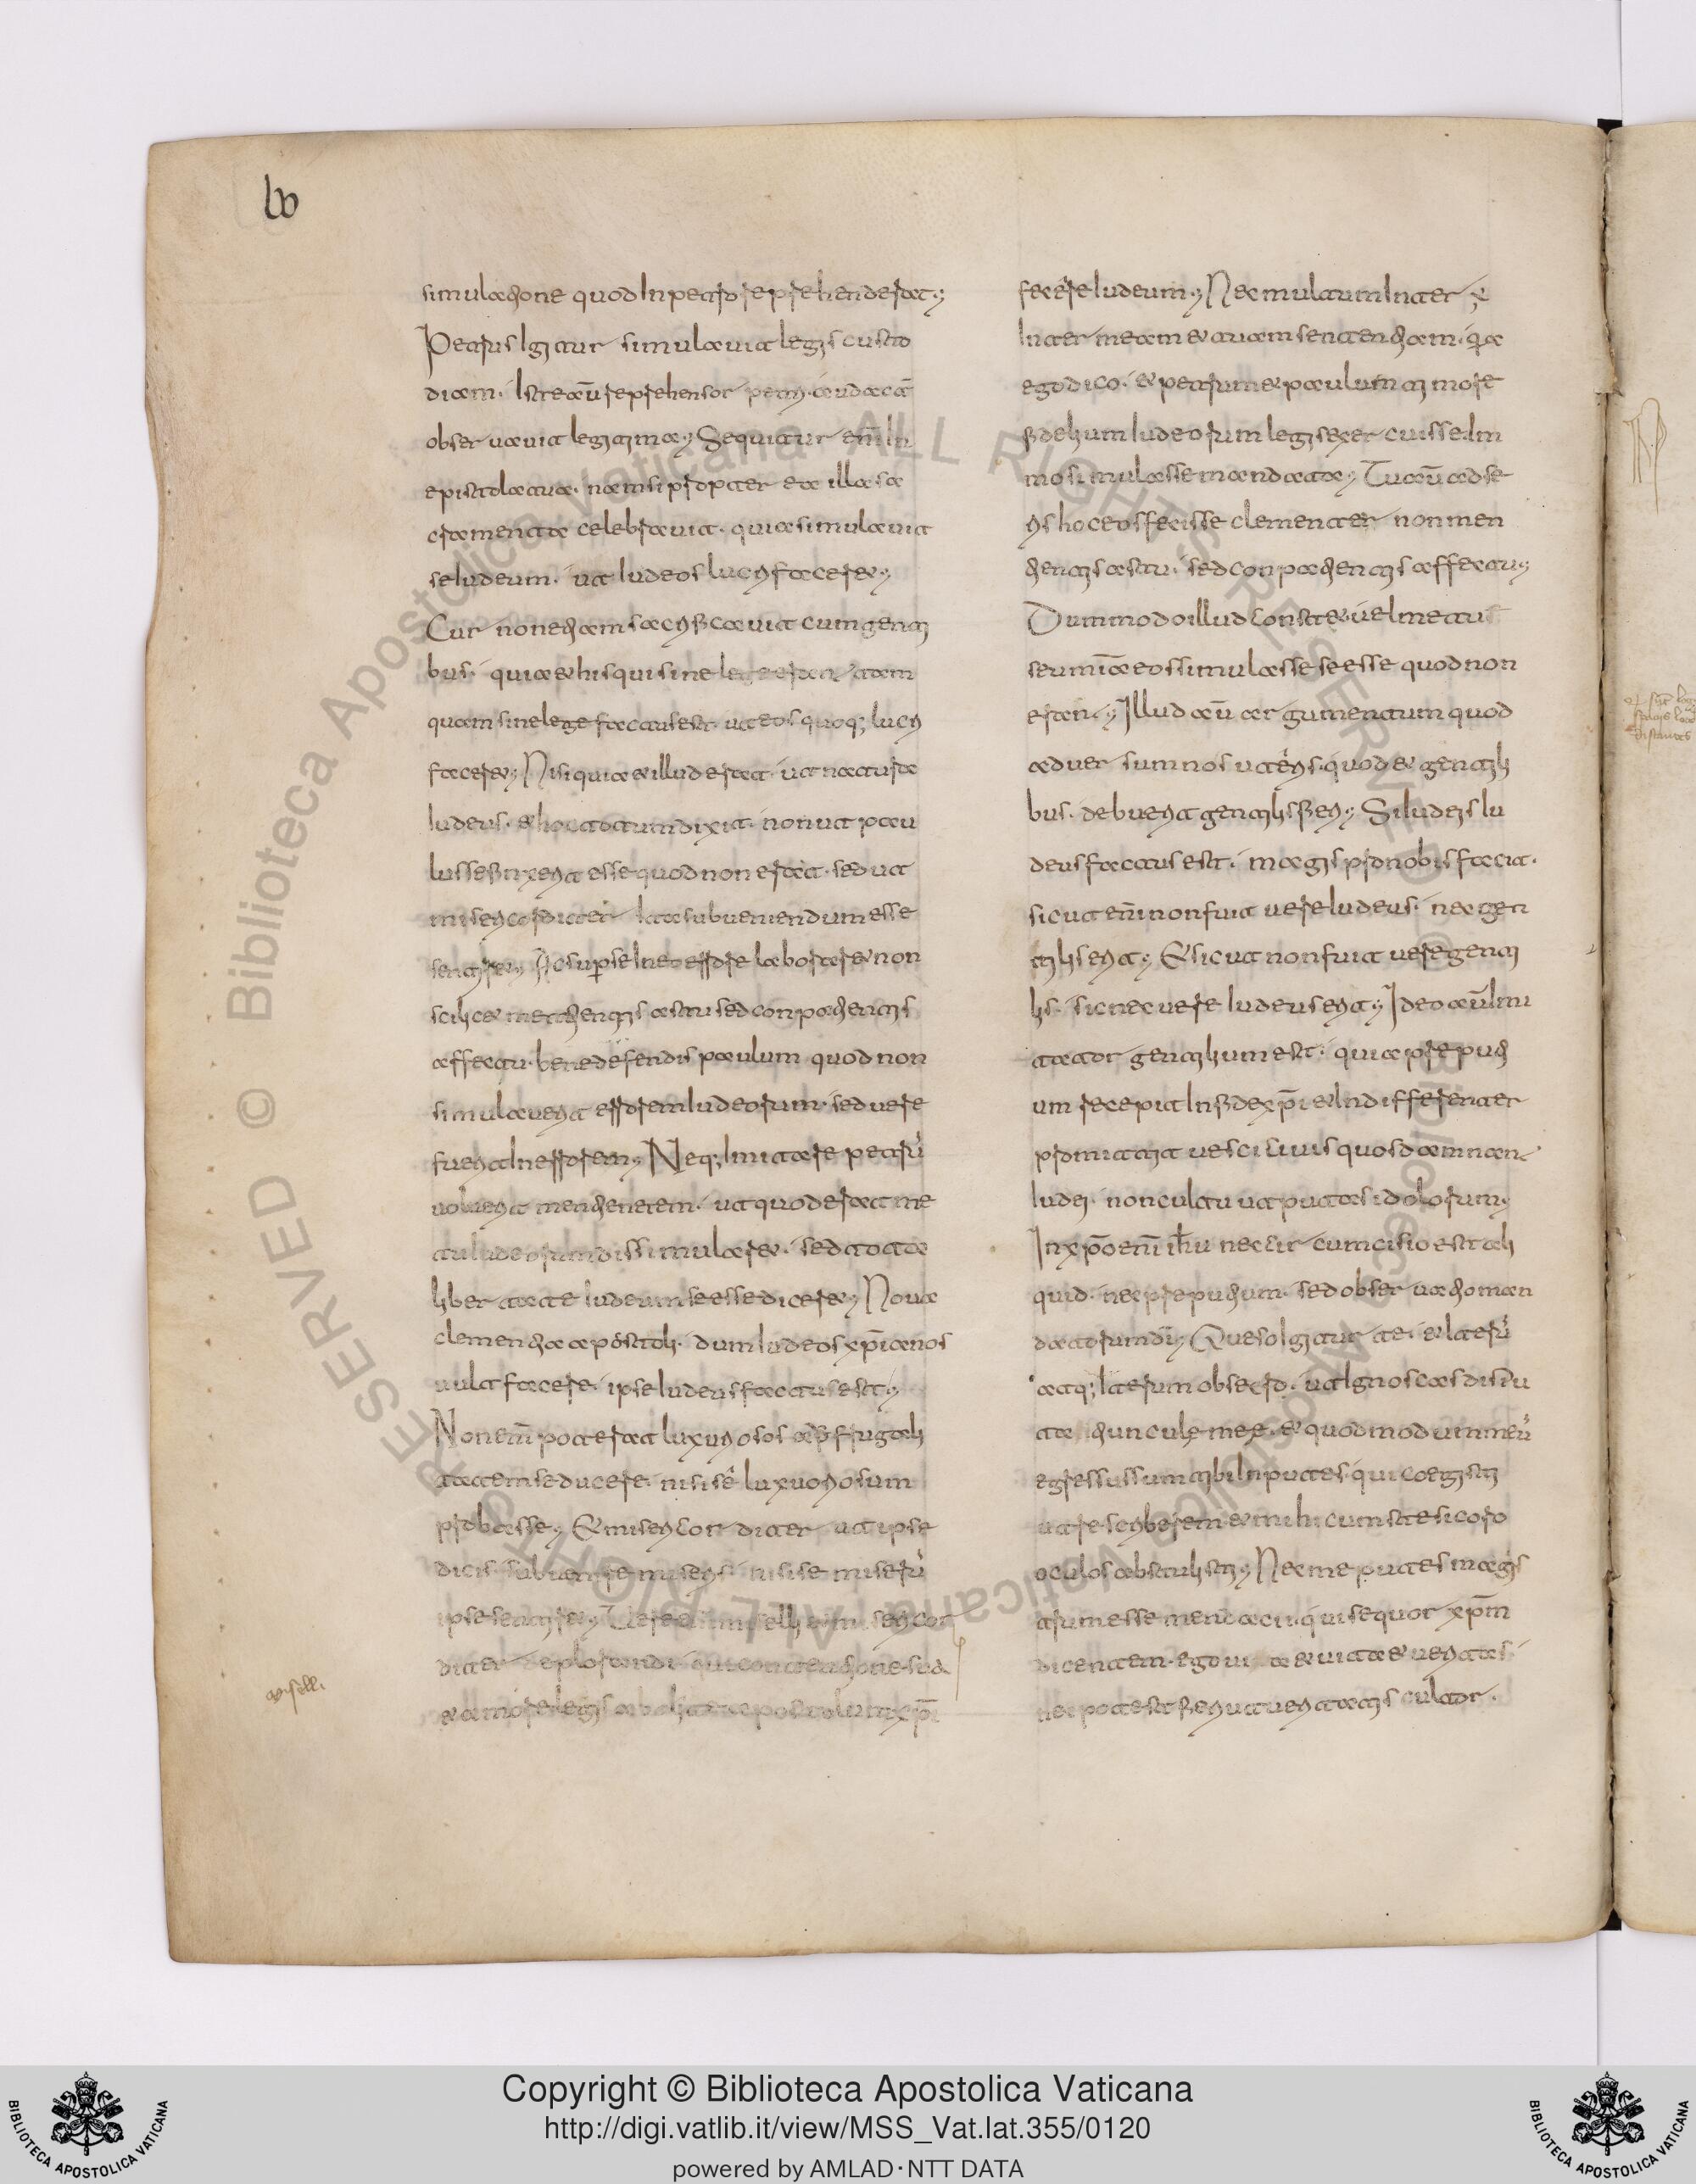 lv
simulatione quod In petro reprehenderat;
Petrus Igitur simulavit legis custo
diam. Iste aū reprehensor petri. audacṫ
observavit legitima; Sequitur enī In
epistola tua. nam si propter ea illa sa
cramenta celebravit. quia simulavit
se Iudeum. ut Iudeos lucri faceret;
Cur non etiam sacrificavit cum genti
bus. quia et his qui sine lege erant tam
quam sine lege factus est. ut eos quoq; lucri
faceret; Nisi quia et illud erat ut natura
Iudeus. et hoc totum dixit. non ut pau
lus se finxerit esse quod non erat. sed ut
misericorditer Ita subveniendum esse
sentiret; Ac si ipse In eo errore laboraret non
scilicet mentientis astu sed conpatientis
affectu. bene defendis paulum quod non
simulaverit errorem Iudeorum. sed vere
fuerit In errorem; Neq; Imitare petrū
voluerit mentientem. ut quod erat me
tu Iudeorum dissimularet. sed tota
libertate Iudeum se esse diceret; Nova
clementia apostoli. dum Iudeos xp̄ianos
vult facere. ipse Iudeus factus est;
Non enī poterat luxuriosos ad frugali
tatem reducere. nisi se luxuoriosum
probasse; Et misericorditer ut ipse
dicis. subvenire miseris nisi se miserū
ipse sentiret; Vere miselli et misericor
diter deplorandi qui contentione sua
et amore legis abolite apostolum xp̄i
miselli
fecere Iudeum; Nec multum Inter ÷
Inter meam et tuam sententiam. qa
ego dico. et petrum et paulum timore
fidelium Iudeorum legis exercuisse. Im
mo simulasse mandata; Tu aū adse
ris hoc eos fecisse clementer non men
tientis astu. sed conpatientis affectu;
Dummodo illud constet vel metu
seu mīa eos simulasse se esse quod non
erant; Illud aū argumentum quod
adversum nos uteris. quod et gentili
bus. debuerit gentilis fieri; Si Iudeis Iu
deus factus est. magis pro nobis facit.
sicut enī non fuit vere Iudeus. nec gen
tilis erat; Et sicut non fuit vere genti
lis. sic nec vere Iudeus erat; Ideo aū Imi
tator gentilium est. quia preputi
um recepit In fide xp̄i et Indifferenter
promittit vesci civis quos damnant
Iudei. non cultu ut putas idolorum;
In xp̄o enī ihu nec circumcisio est ali
quid. nec preputium. sed observatio man
datorum dī; Queso Igitur te. et Iterū
atq; Iterum obsecro. ut Ignoscas disptu
tatiuncule mee. et quod modum meū
egressus sum tibi Inputes. qui coegisti
ut rescriberem. et mihi cum stesicoro
oculos abstulisti; Nec me putes magis
trum esse mendacii. qui sequor xpm
dicentem. ego via et vita et veritas.
nec potest fieri ut veritatis cultor.
Copyright © Biblioteca Apostolica Vaticana
http://digi.vatlib.it/view/MSS_Vat.lat.355/0120
powered by AMLAD·NTT DATA
BIBLIOTECA APOSTOLICA VATICANA
BIBLIOTECA APOSTOLICA VATICANA